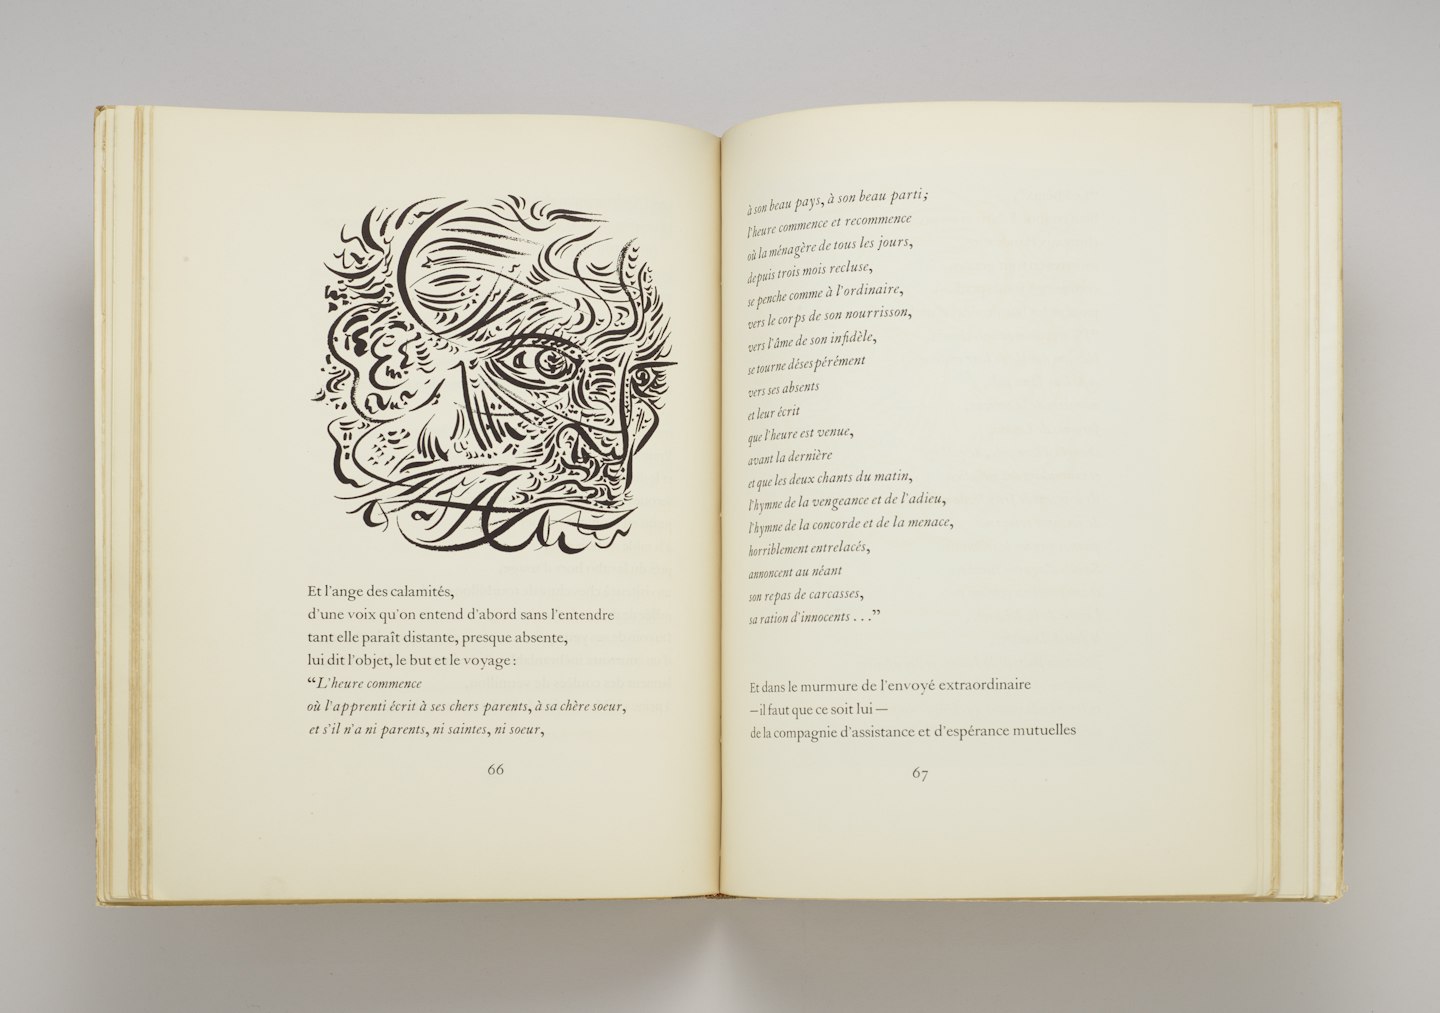 Et l'ange des calamités,
d'une voix qu'on entend d'abord sans l'entendre
tant elle paraît distante, presque absente,
lui dit l'objet, le but et le voyage :
“L'heure commence
où l'apprenti écrit à ses chers parents, à sa chère soeur,
et s'il n'a ni parents, ni saintes, ni soeur,
66
à son beau pays, à son beau parti ;
l'heure commence et recommence
où la ménagère de tous les jours,
depuis trois mois recluse,
se penche comme à l'ordinaire,
vers le corps de son nourrisson,
vers l'âme de son infidèle,
se tourne désespérément
vers ses absents
et leur écrit
que l'heure est venue,
avant la dernière
et que les deux chants du matin,
l'hymne de la vengeance et de l'adieu,
l'hymne de la concorde et de la menace,
horriblement entrelacés,
annoncent au néant
son repas de carcasses,
sa ration d'innocents . . .”
Et dans le murmure de l'envoyé extraordinaire
—il faut que ce soit lui—
de la compagnie d'assistance et d'espérance mutuelles
67